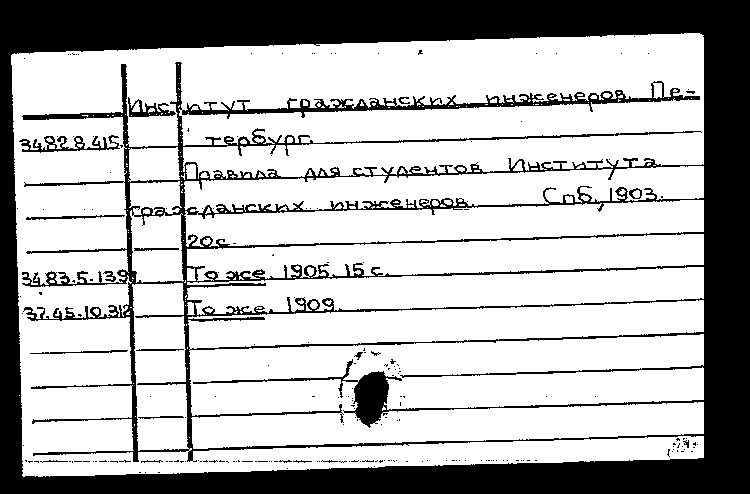 Институт гражданских инженеров. Пе-
34.82 8.415. тербург.
Правила для студентов Института
гражданских инженеров. Спб., 1903.
20с.
34.83.5.139. То же. 1905. 15 с.
37.45.10.312 То же. 1909.